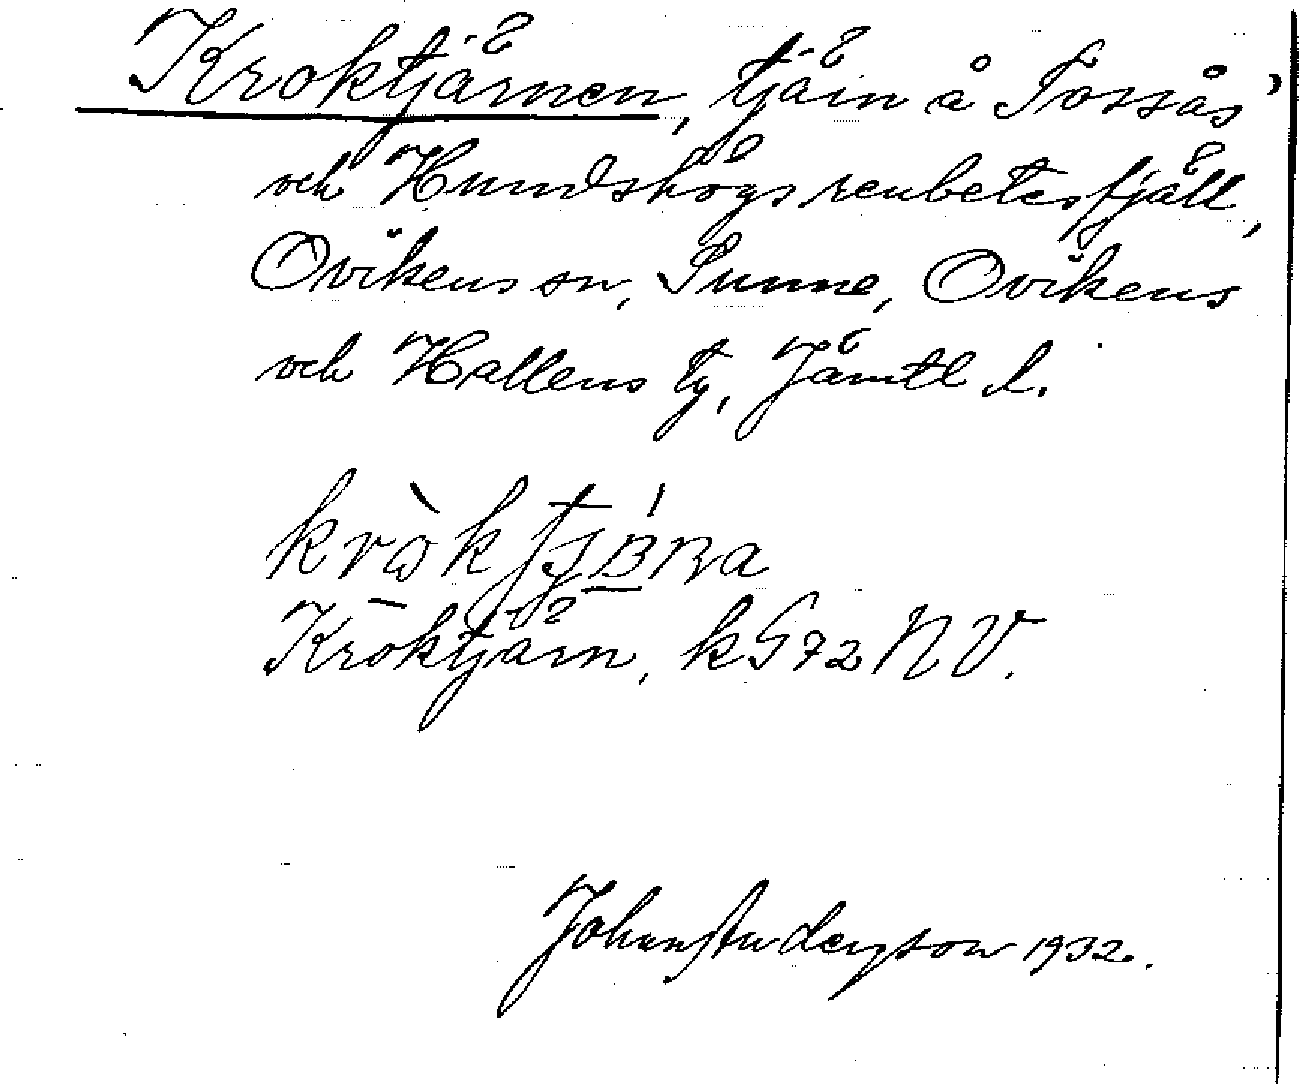 Kroktjärnen, tjärn å Tossås'
och Hundshögs renbetesfjäll,
Ovikens sn, Sunne, Ovikens
och Hallens tg, Jämtl l.
Kroktjärn, kG72 NV.
Johan Anderson 1932.